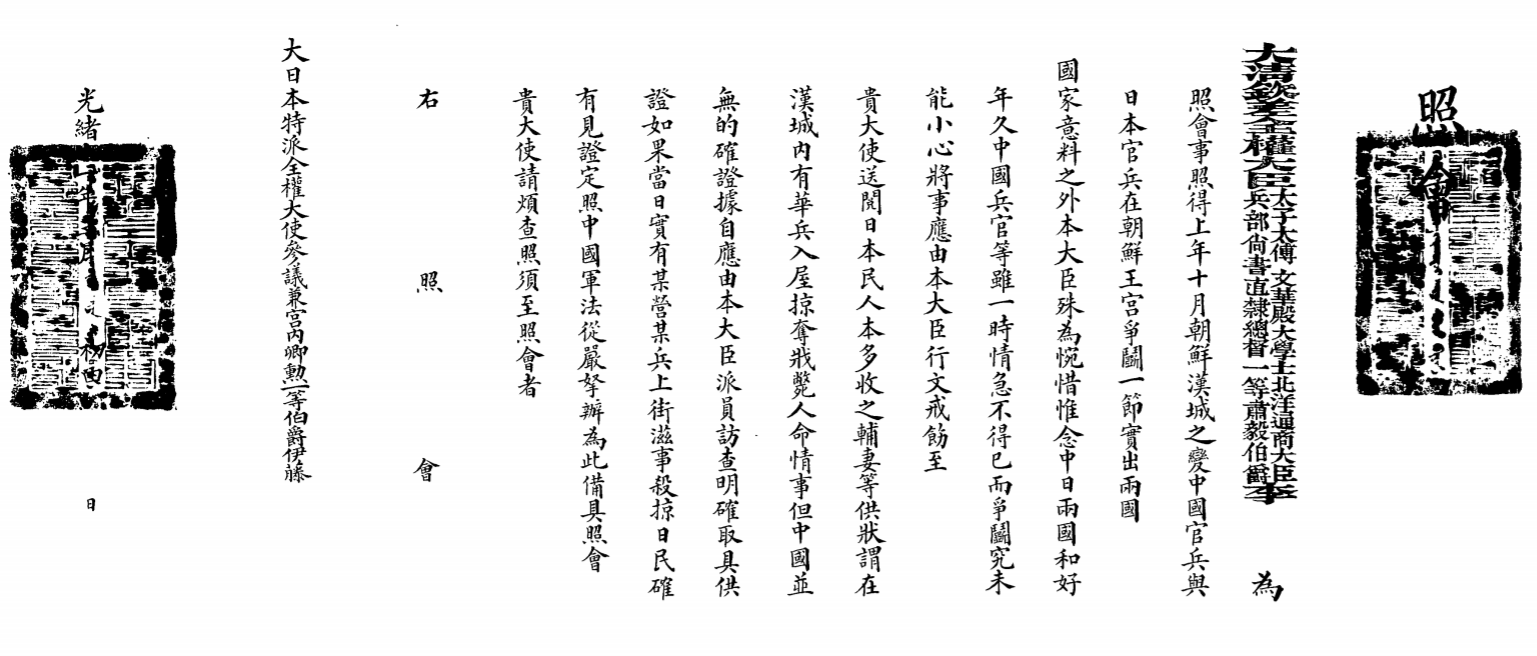 照會
大清欽差全權大臣太子太傅文華殿大學士北洋通商大臣兵部尚書直隸總督一等肅毅伯爵李為
照會事照得上年十月朝鮮漢城之變中國官兵與
日本官兵在朝鮮王宮爭鬬一節實出兩國
國家意料之外本大臣殊為惋惜惟念中日兩國和好
年久中國兵官等雖一時情急不得已而爭鬬究未
能小心將事應由本大臣行文戒飭至
貴大使送閱日本民人本多收之輔妻等供狀謂在
漢城內有華兵入屋掠奪戕斃人命情事但中國並
無的確證據自應由本大臣派員訪查明確取具供
證如果當日實有某營某兵上街滋事殺掠日民確
有見證定照中國軍法從嚴拏辦為此備具照會
貴大使請煩查照須至照會者
右照會
大日本特派全權大使參議兼宮內卿勳一等伯爵伊藤
光緒 年 月初四日